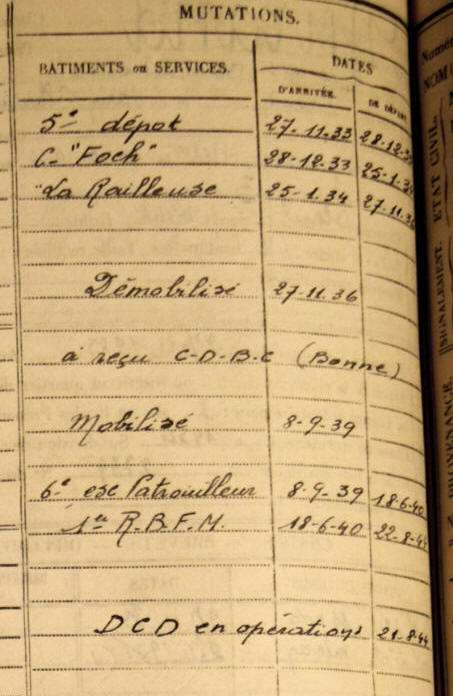 MUTATIONS.
BATIMENTS ou SERVICES.
DATES
D'ARRIVÉE.
DE DÉPART
5e dépot 27-11-33 28-12-33
C- "Foch" 28-12-33 25-1-34
"La Railleuse 25-1-34 27-11-36
Démobilisé 27-11-36
a reçu C-D-B-C (Bonne)
Mobilisé 8-9-39
6e esc Patrouilleur 8-9-39 18-6-40
1er R.B.F.M. 18-6-40 22-8-44
DCD en opérations 21-8-44
Numéro
NOM
ÉTAT CIVIL.
SIGNALEMENT.
PROVENANCE.